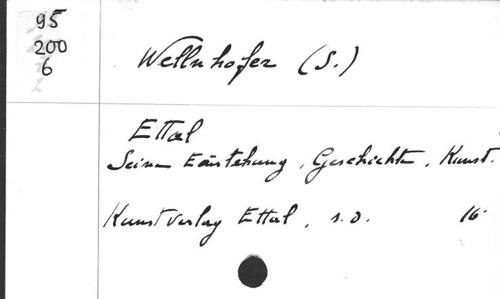 95
200
6
Wellnhofer (S.)
Ettal
Seine Entstehung, Geschichte, Kunst.
Kunstverlag Ettal, s.d. 16°